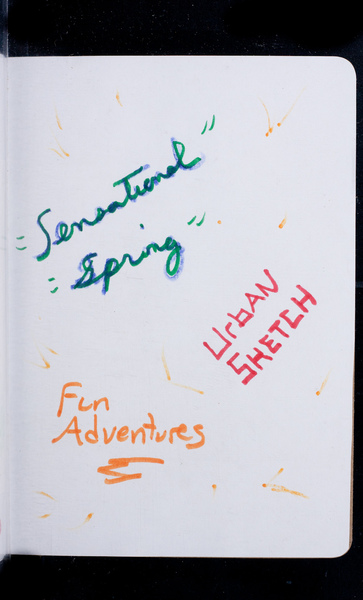 "Sensational"
"Spring"
UrbAN
SKETCH
Fun
Adventures